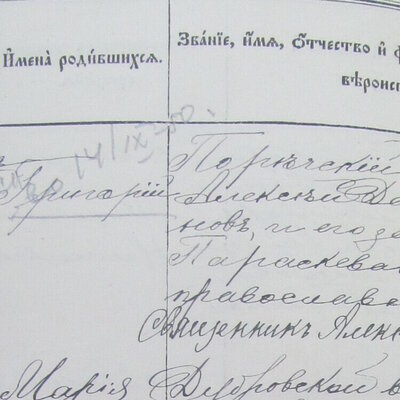 Имена̀ роди́вшихся.
Зва́нїе, и́мя, ѻ҆́тчество и҆ ф
вѣроисп
14/IX-
Григорій
Порѣчскій
Алексѣй Де
новъ, и его за
Параскева
православн
Священникъ Алекс
Марія
Дубровской в